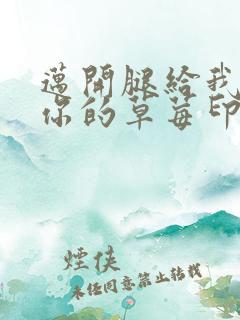 邁開腿給我
你的草莓印
煙俠
未任同意禁止转载